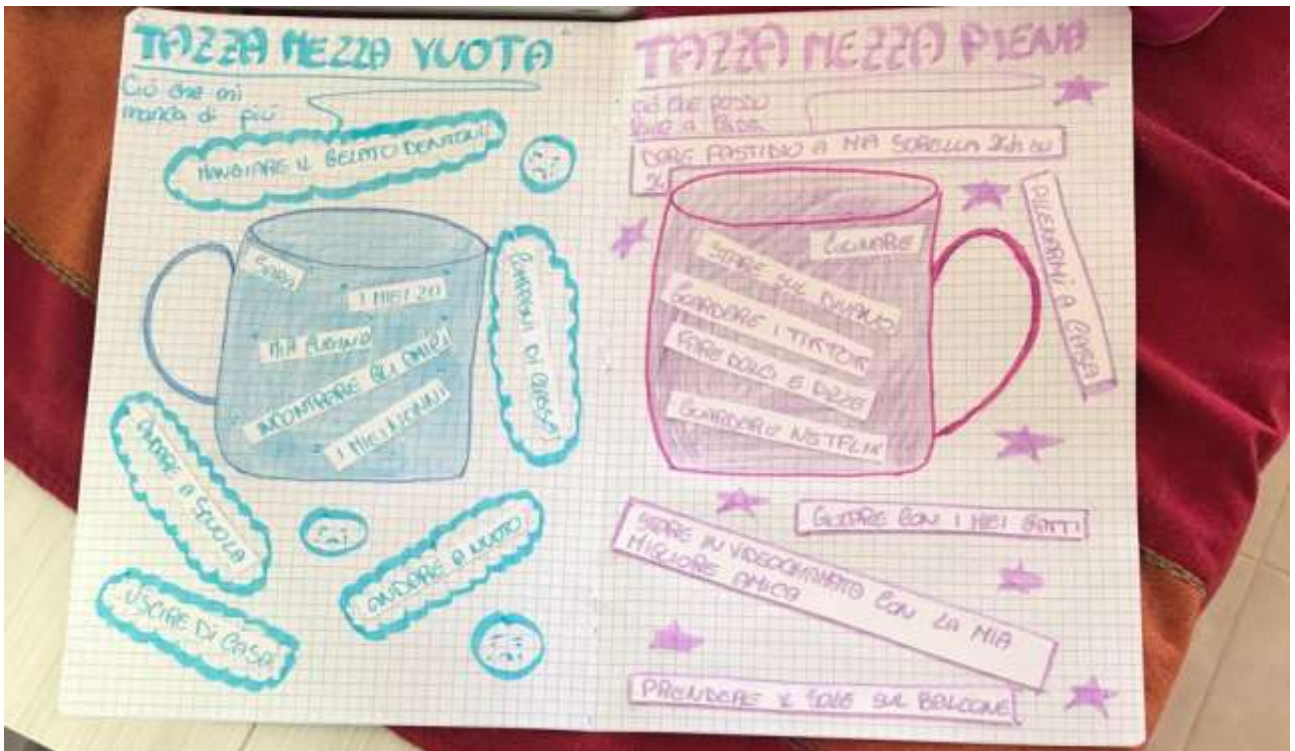 TAZZA MEZZA VUOTA
Ciò che mi
manca di più
MANGIARE IL GELATO DENTONI
SARA
I MIEI ZII
MIA CUGINO
INCONTRARE GLI AMICI
I MIEI NONNI
COMPAGNI DI CLASSE
ANDARE A SCUOLA
ANDARE A NUOTO
USCIRE DI CASA
TAZZA MEZZA PIENA
ciò che posso
fare a casa
DARE FASTIDIO A MIA SORELLA 24h su
24
CUCINARE
STARE SUL DIVANO
GUARDARE I TIKTOK
FARE DOLCI E PIZZE
GUARDARE NETFLIX
ALLENARMI A CASA
GIOCARE CON I MIEI GATTI
STARE IN VIDEOCHIAMATA CON LA MIA
MIGLIORE AMICA
PRENDERE IL SOLE SUL BALCONE